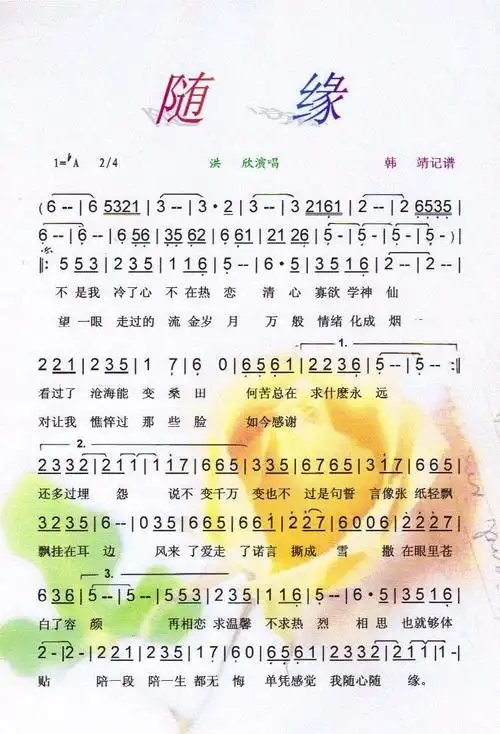 随 缘
1=♯A 2/4 洪 欣演唱 韩 靖记谱
(6 -- | 6 5321 | 3 -- | 3·2 | 3 -- | 3 -- | 2161 | 2 -- | 2 6535 |
6 -- 6 -- | 6 56 | 35 62 | 6 61 | 21 26 | 5 - | 5 - | 5 - | 5 - )|
‖: 5 53 | 2 35 | 1 16 | 5 -- | 6·5 | 3 516 | 2 -- | 2 -- |
不是我 冷了心 不在热 恋 清心 寡欲 学神 仙
望一眼 走过的 流金岁 月 万 般 情绪 化成 烟
2 21 | 2 35 | 1 7 | 6 0 | 6561 | 2236 | 5 -- | 5 -- :‖
1.
看过了 沧海能 变 桑 田 何苦总在 求什麽永 远
对让我 憔悴过 那 些 脸 如今感谢
2.
2332 | 211 | 117 | 665 | 335 | 665 | 3561 | 1653 |
还多过埋 怨 说不 变千万 变也不 过是句誓 言像张 纸轻飘
3235 | 6 -- | 035 | 665 | 616 | 127 | 6006 | 2227 |
飘挂在耳 边 风来 了爱走 了诺言 撕成 雪 撒在眼里苍
3.
636 | 5 -- | 5 -- | 553 | 235 | 116 | 5 -- | 6·5 | 3516 |
白了容 颜 再相恋 求温馨 不求热 烈 相思 也就够体
2- | 2- | 221 | 235 | 17 | 60 | 6561 | 2332 | 211 | 1- |
贴 陪一段 陪一生 都无 悔 单凭感觉 我随心随 缘。